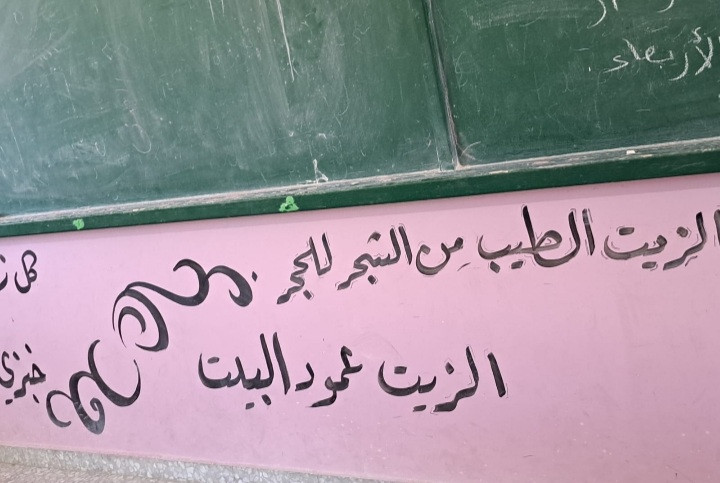 الأربعاء
الزيت الطيب من الشجر للحجر
الزيت عمود البيت
كل
خبزي